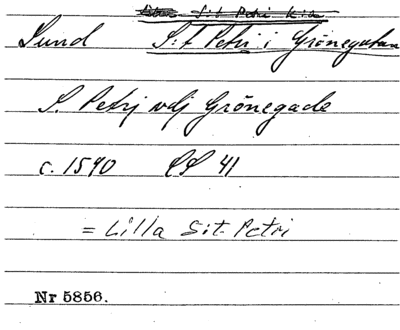 Sit Petri k:a
Lund S:t Petri i Grönegatan
S. Petrj vdj Grönegade
c. 1590 LS 41
= Lilla S:t Petri
Nr 5856.